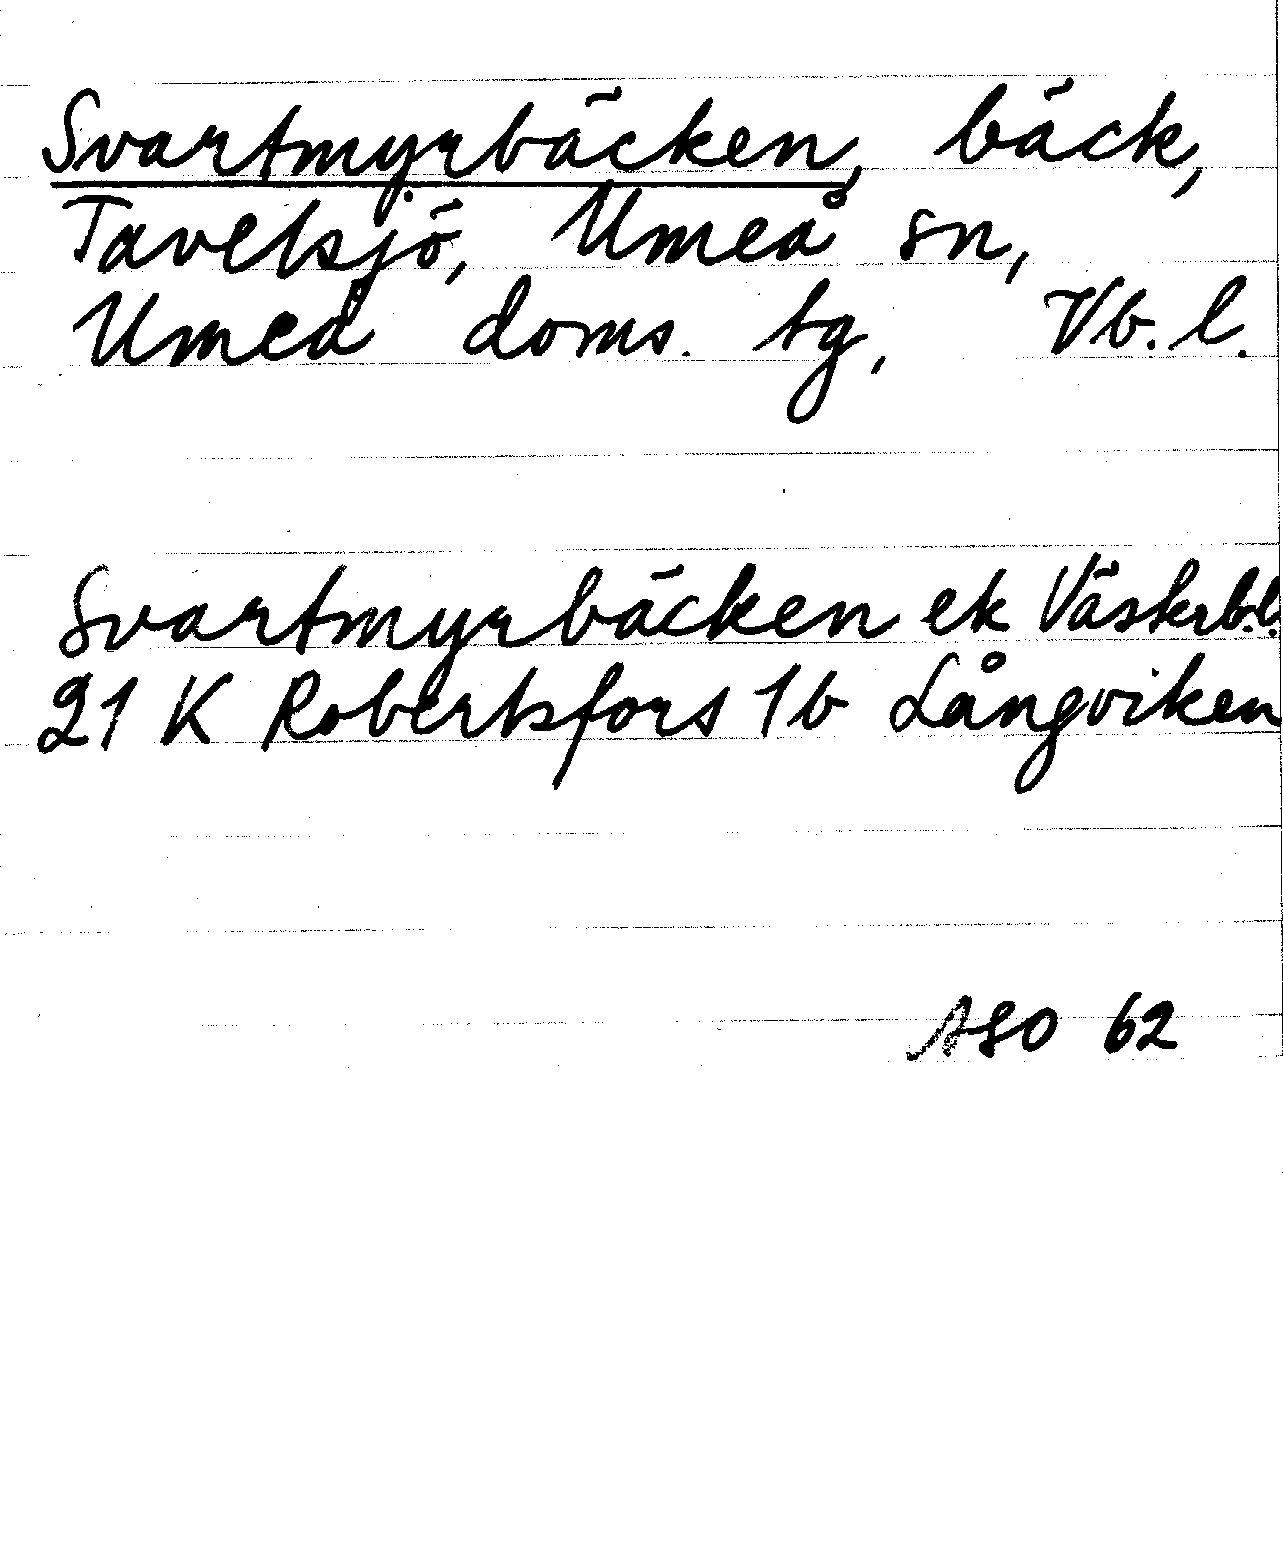 Svartmyrbäcken, bäck,
Tavelsjö, Umeå sn,
Umeå doms. tg, Vb. l.
Svartmyrbäcken ek Västerb.l.
21 K Robertsfors 1b Långviken
ASO 62